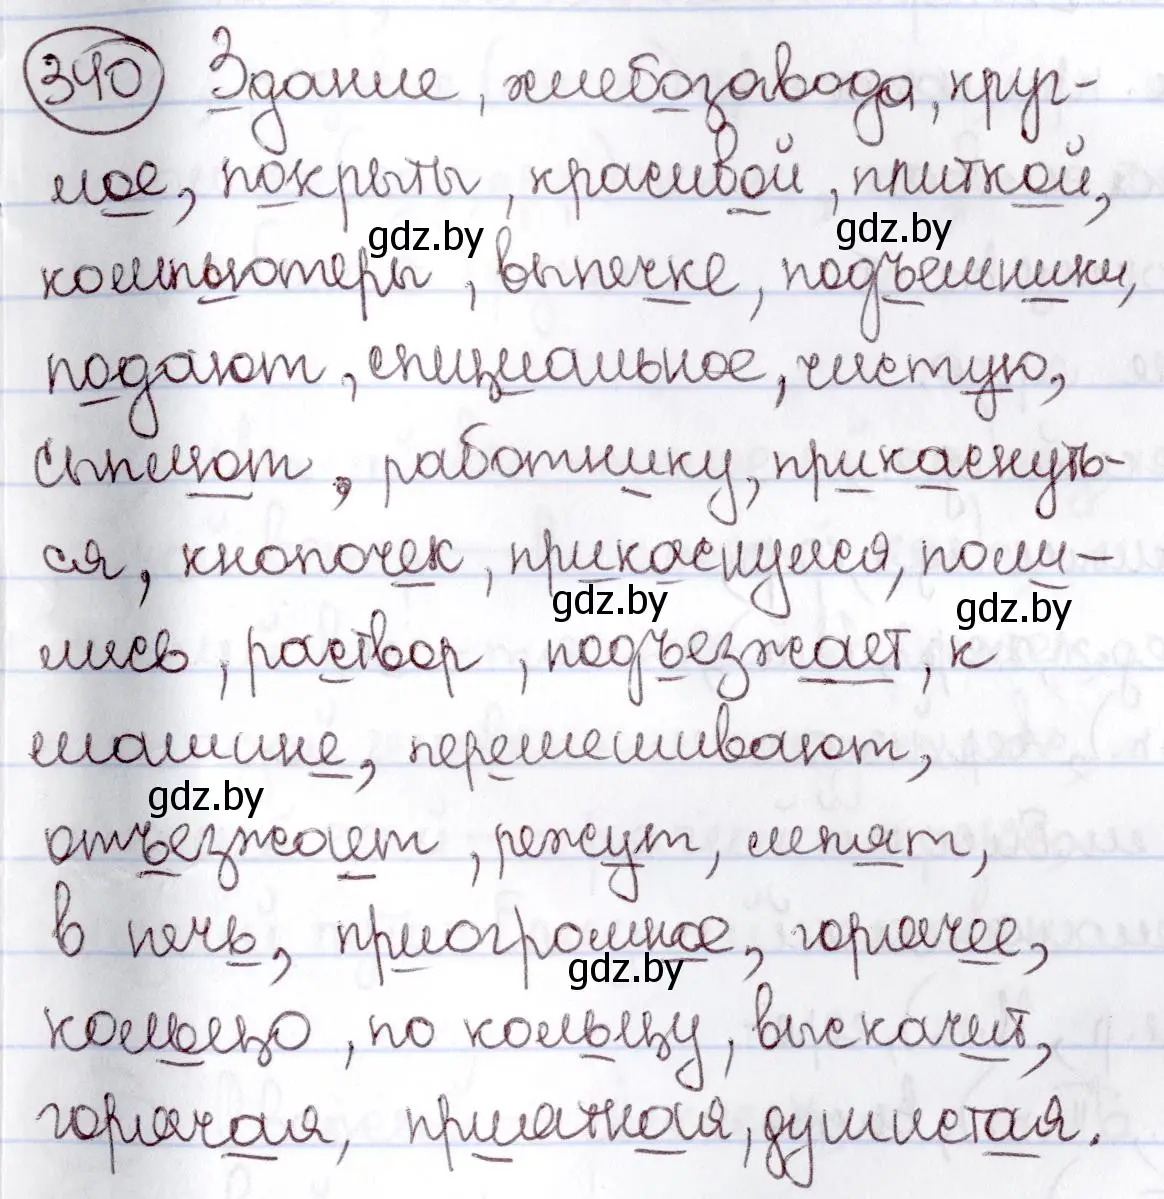 340 Здание, хлебозавода, круг-
лое, покрыты, красивой, плиткой,
gdz.by gdz.by
компьютеры, выпечке, подъемники,
подают, специальное, чистую,
сыплют, работнику, прикаснуть-
ся, кнопочек, прикаснулся, поли-
gdz.by gdz.by
лись, раствор, подъезжает, к
машине, перемешивают,
gdz.by
отъезжает, режут, лепят,
в печь, приогромное, горячее,
gdz.by
кольцо, по кольцу, выскачит,
горячая, приятная, душистая.